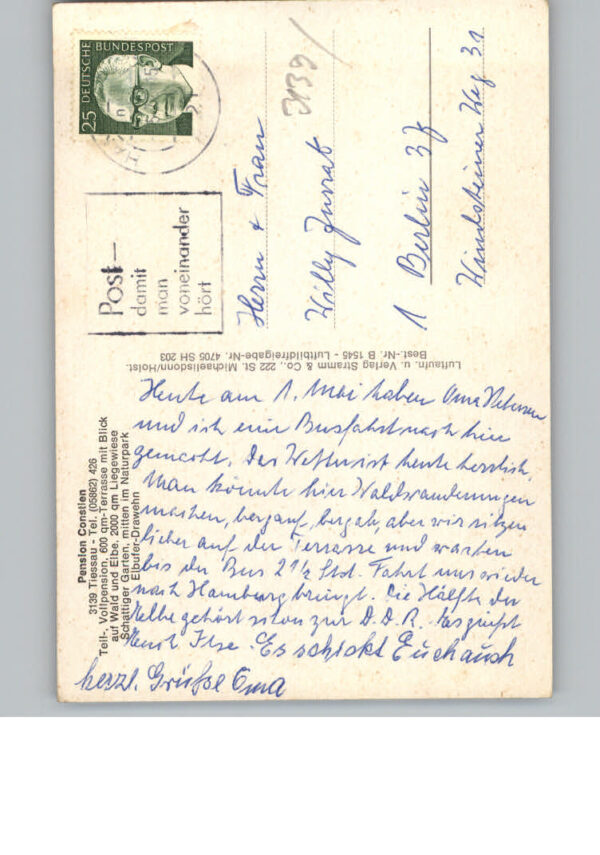 25 DEUTSCHE BUNDESPOST
Post–
damit
man
voneinander
hört
3139
Herrn & Frau
Willy
1 Berlin 37
Weg 31
Luftaufn. u. Verlag Stramm & Co., 222 St. Michaelisdonn/Holst.
Best.-Nr. B 1545 - Luftbildfreigabe-Nr. 4705 SH 203
Pension Constien
3139 Tiessau - Tel. (05862) 426
Teil-, Vollpension, 600 qm-Terrasse mit Blick
auf Wald und Elbe, 2000 qm Liegewiese
Schattiger Garten, mitten im Naturpark
Elbufer-Drawehn
Heute am 1. Mai haben Oma Petersen
und ich eine Busfahrt nach hier
gemacht. Das Wetter ist heute herrlich.
Man könnte hier Waldwanderungen
machen, bergauf, bergab, aber wir sitzen
lieber auf der Terrasse und warten
bis der Bus 2 1/2 Std. Fahrt uns wieder
nach Hamburg bringt. Die Hälfte der
Elbe gehört schon zur D.D.R. Es grüßt
Euch Ilse. Es schickt Euch auch
herzl. Grüße Oma